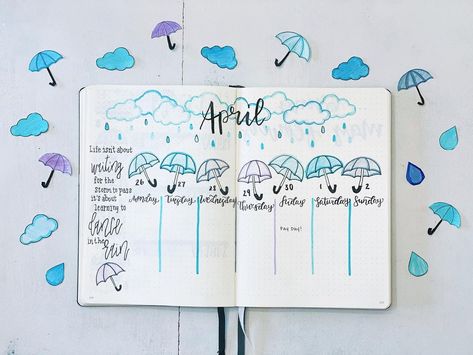 April
Life isn't about
waiting
for the
storm to pass
it's about
learning to
dance
in the
rain
26 27 28 29 30 1 2
Monday Tuesday Wednesday Thursday Friday Saturday Sunday
Pay Day!